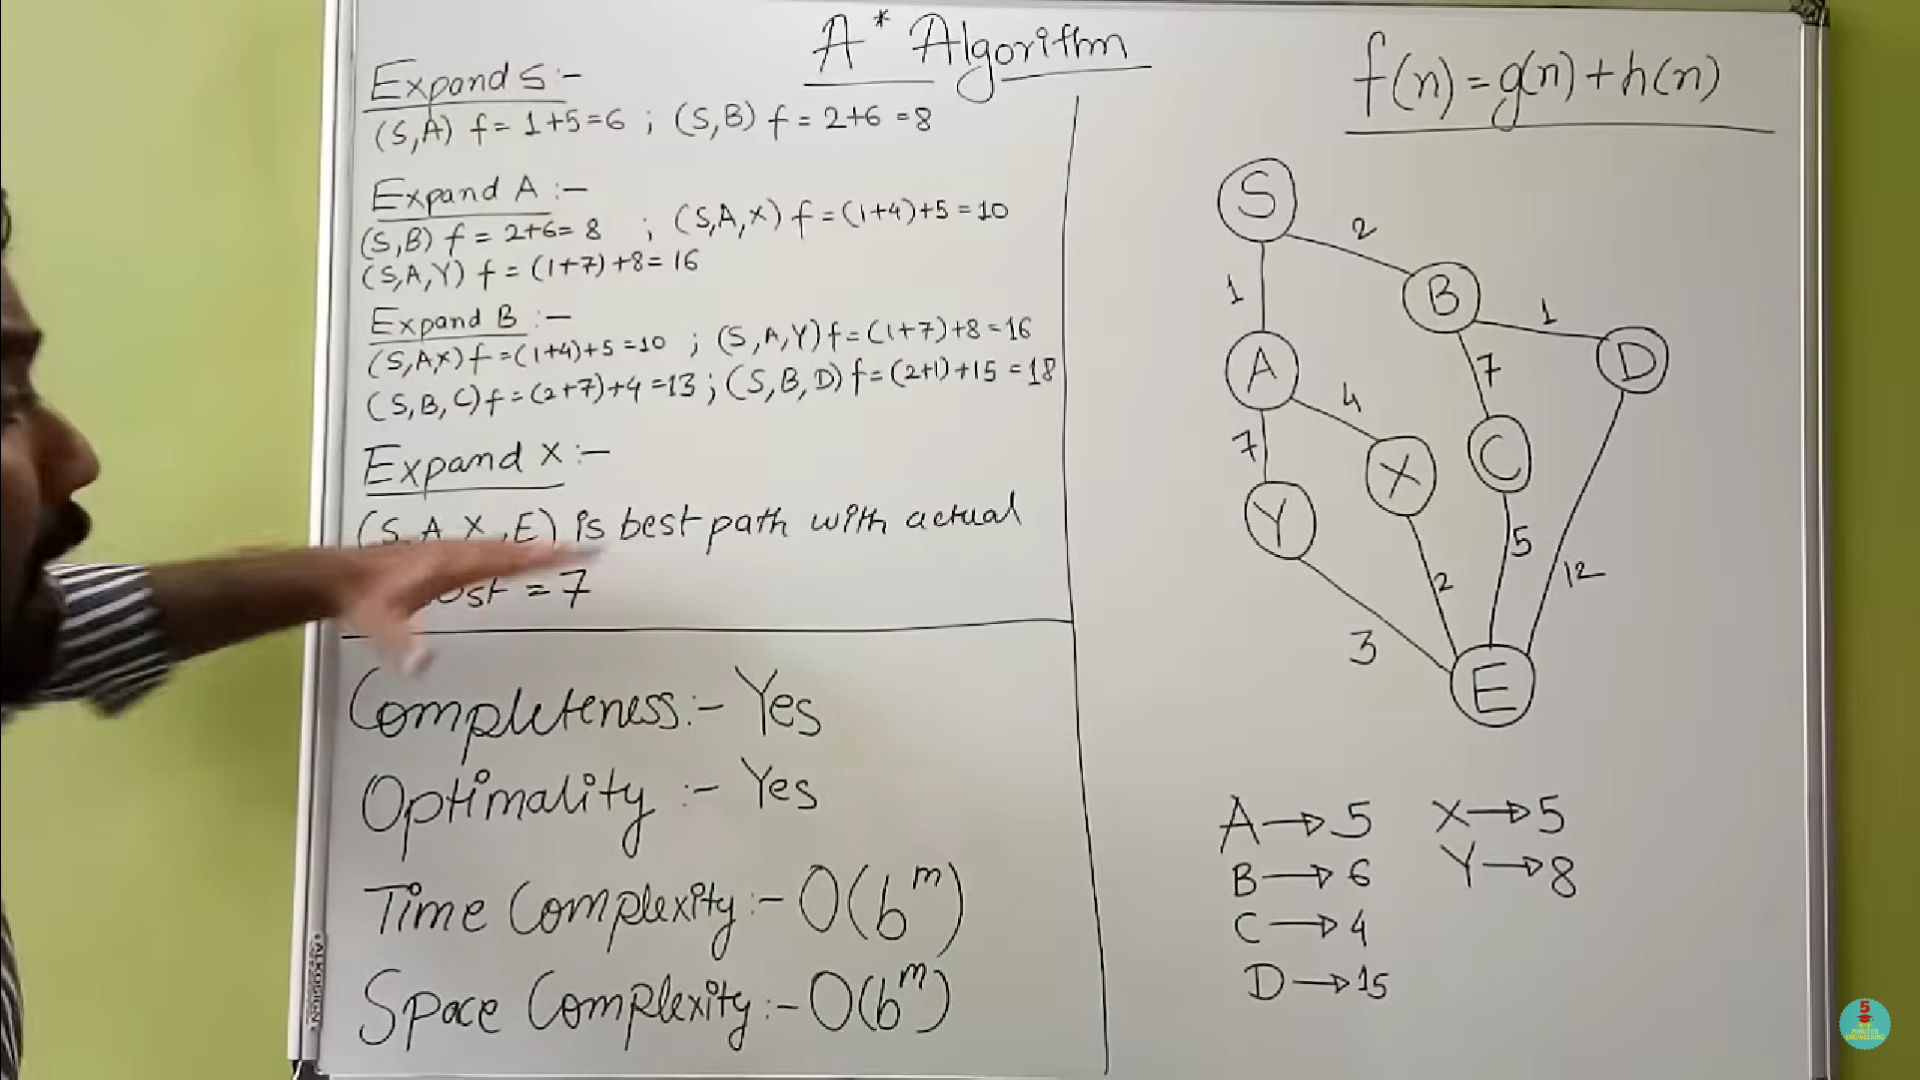 A* Algorithm
f(n) = g(n) + h(n)
Expand S :-
(S,A) f = 1+5=6 ; (S,B) f = 2+6 = 8
Expand A :-
(S,B) f = 2+6= 8 ; (S,A,X) f = (1+4)+5 = 10
(S,A,Y) f = (1+7)+8= 16
Expand B :-
(S,A,X) f =(1+4)+5 =10 ; (S,A,Y) f =(1+7)+8 =16
(S,B,C) f = (2+7)+4 =13 ; (S,B,D) f = (2+1)+15 =18
Expand X :-
(S A X, E) is best path with actual
= 7
Completeness :- Yes
Optimality :- Yes
Time Complexity :- O(b^m)
Space Complexity :- O(b^m)
S
2
1
B
1
A
D
7
4
7
X
C
Y
5
2
12
3
E
A → 5 X → 5
B → 6 Y → 8
C → 4
D → 15
5
MINUTES
ENGINEERING